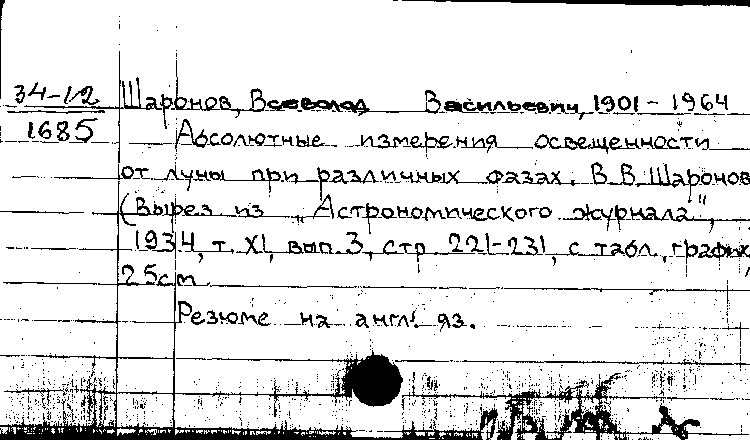 34-12
1685
Шаронов, Всеволод Васильевич, 1901 - 1964
Абсолютные измерения освещенности
от луны при различных фазах. В.В. Шаронов
(Вырез из „Астрономического журнала",
1934, т. XI, вып. 3, стр 221-231, с табл., график,
25см.
Резюме на англ. яз.